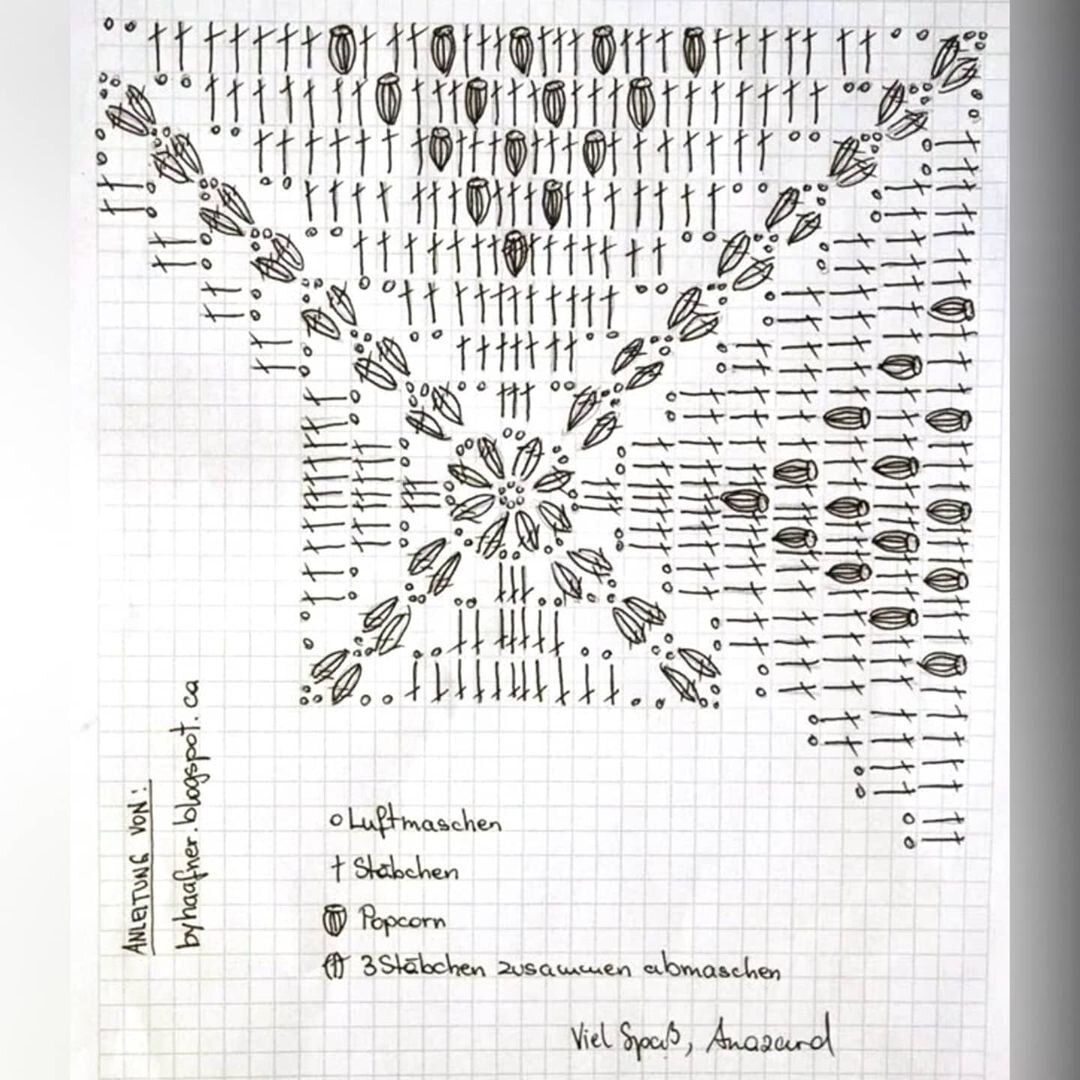 ANLEITUNG VON:
byhaafner.blogspot.ca
Luftmaschen
Stäbchen
Popcorn
3 Stäbchen zusammen abmaschen
Viel Spaß, Anazard